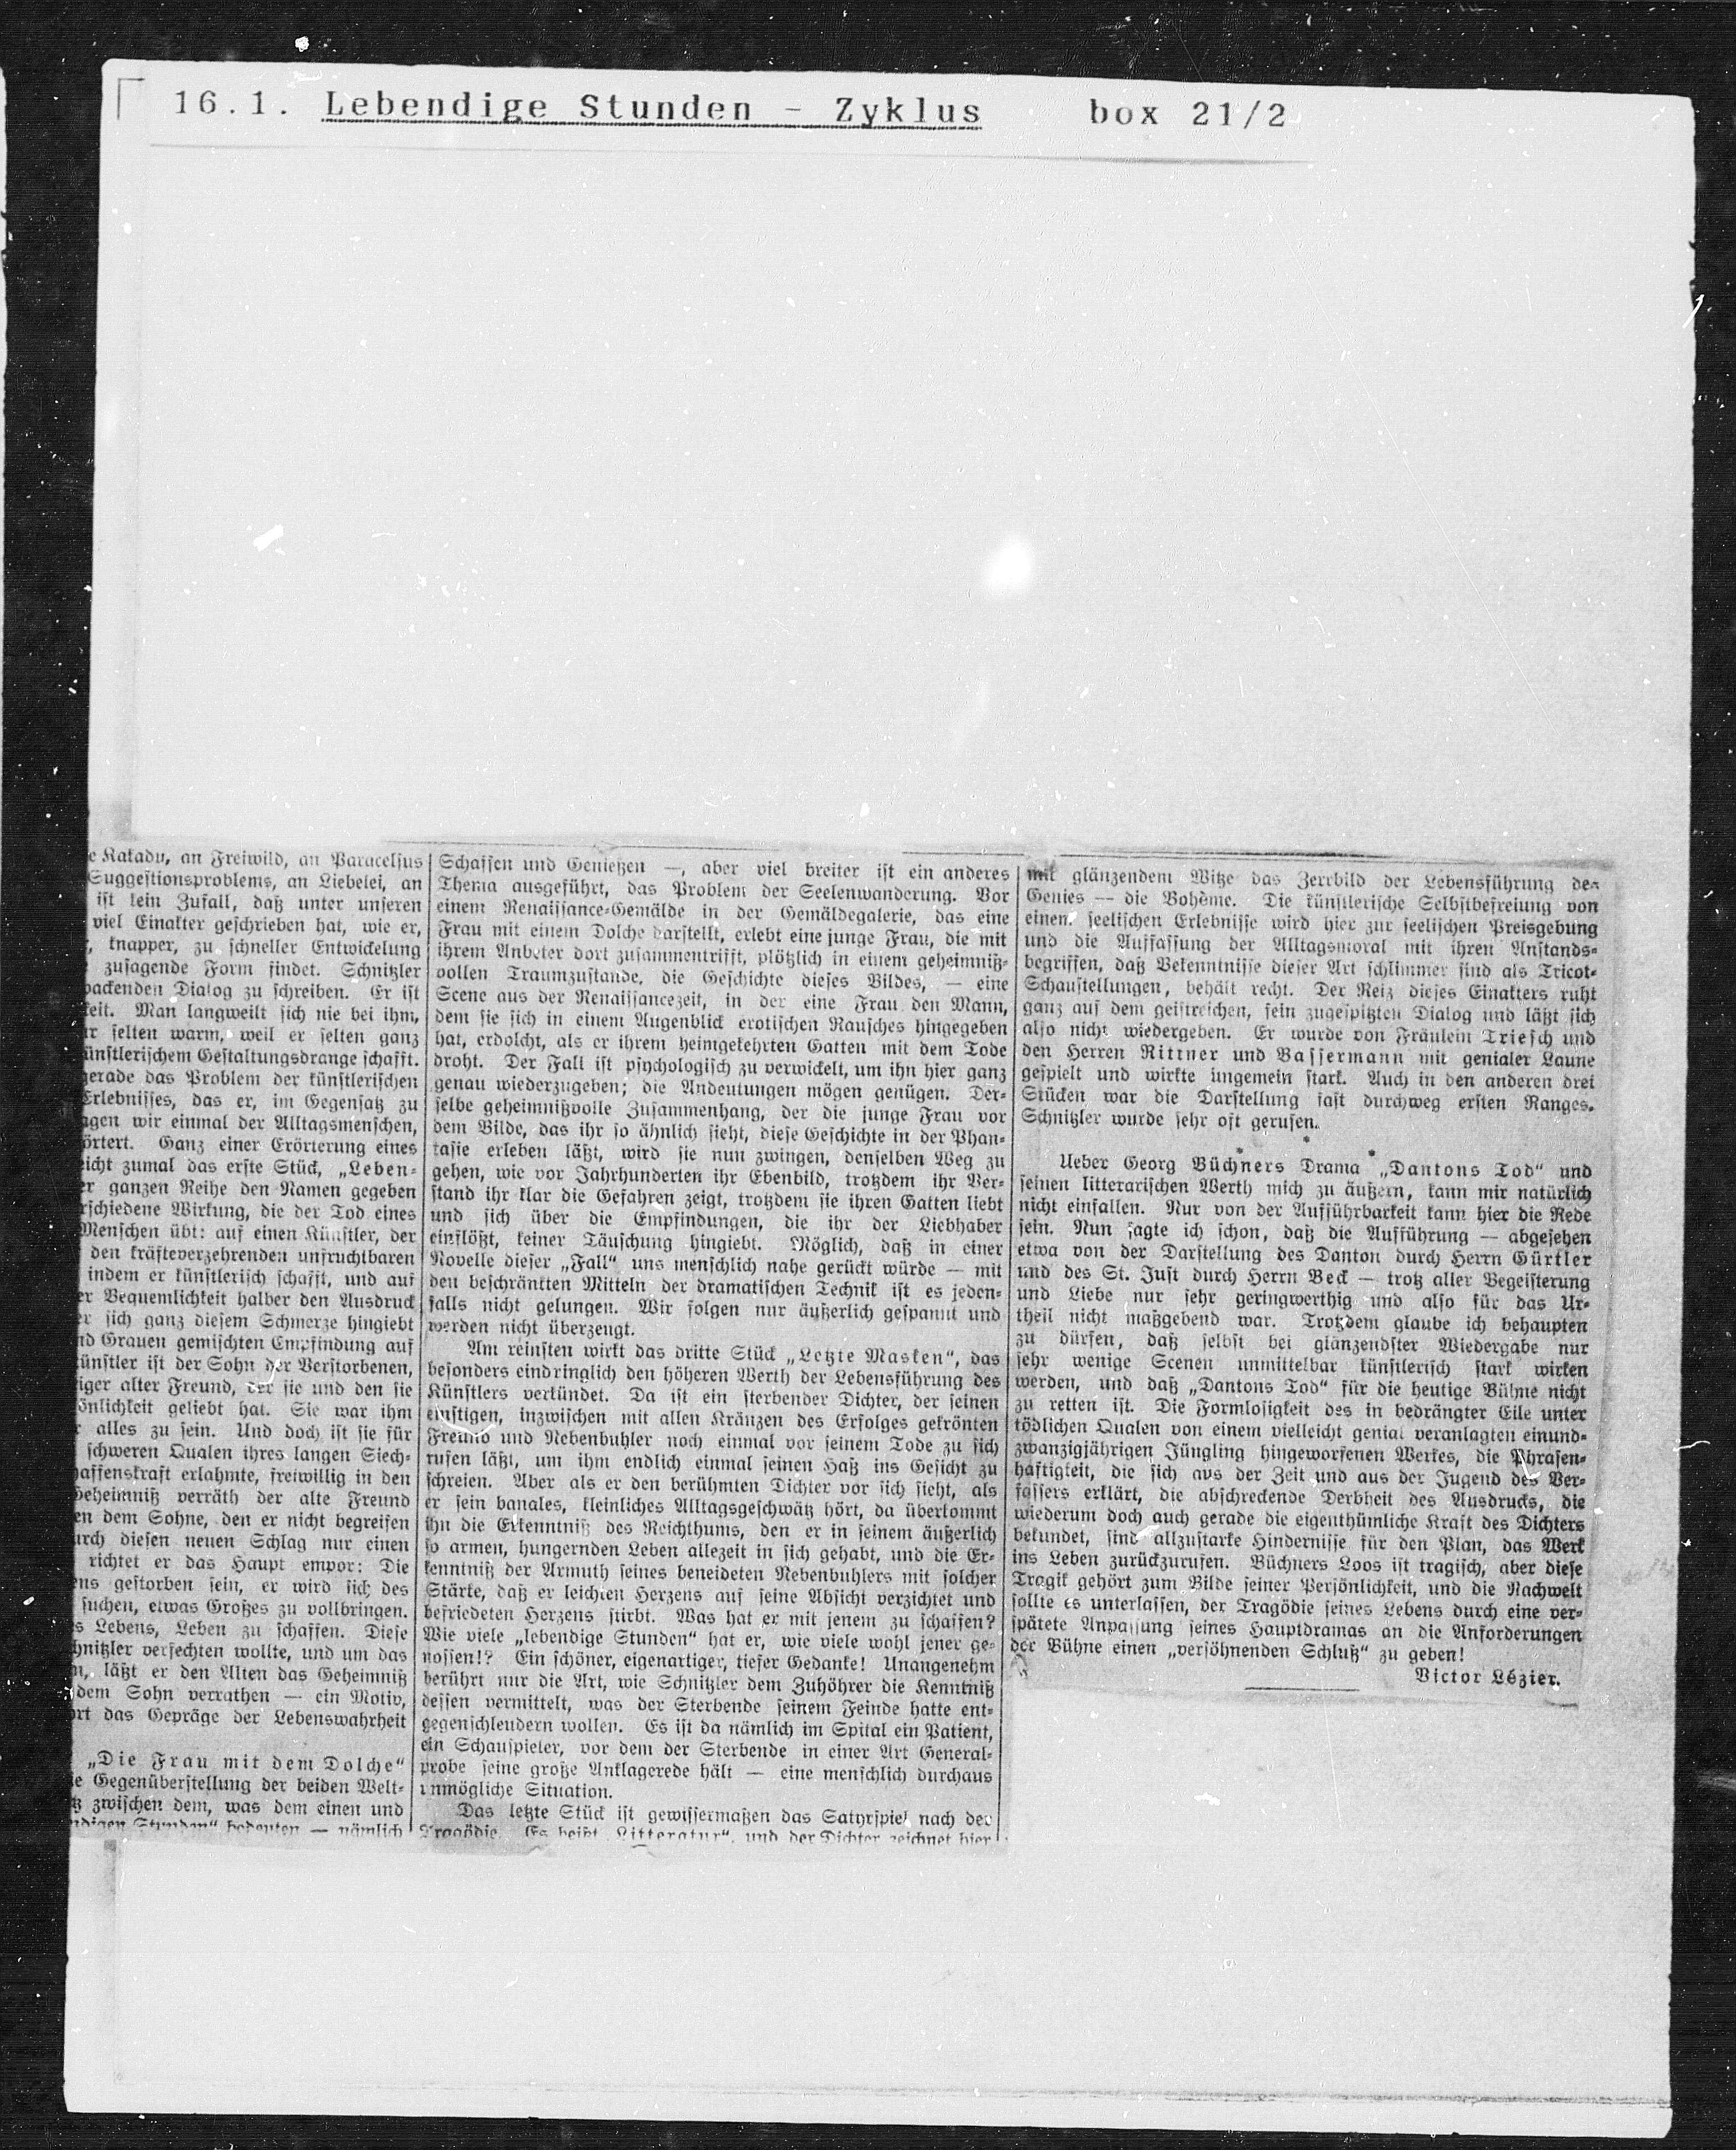 16.1. Lebendige Stunden - Zyklus box 21/2
e Kakadu, an Freiwild, an Paracelsus
Suggestionsproblems, an Liebelei, an
ist kein Zufall, daß unter unseren
viel Einakter geschrieben hat, wie er,
, knapper, zu schneller Entwickelung
zusagende Form findet. Schnitzler
packenden Dialog zu schreiben. Er ist
keit. Man langweilt sich nie bei ihm,
r selten warm, weil er selten ganz
ünstlerischem Gestaltungsdrange schafft.
gerade das Problem der künstlerischen
Erlebnisses, das er, im Gegensatz zu
agen wir einmal der Alltagsmenschen,
örtert. Ganz einer Erörterung eines
eicht zumal das erste Stück, „Leben-
er ganzen Reihe den Namen gegeben
rschiedene Wirkung, die der Tod eines
Menschen übt: auf einen Künstler, der
den kräfteverzehrenden unfruchtbaren
indem er künstlerisch schafft, und auf
er Bequemlichkeit halber den Ausdruck
er sich ganz diesem Schmerze hingiebt
nd Grauen gemischten Empfindung auf
künstler ist der Sohn der Verstorbenen,
iger alter Freund, der sie und den sie
önlichkeit geliebt hat. Sie war ihm
r alles zu sein. Und doch ist sie für
schweren Qualen ihres langen Siech-
haffenskraft erlahmte, freiwillig in den
Geheimniß verräth der alte Freund
en dem Sohne, den er nicht begreifen
urch diesen neuen Schlag nur einen
richtet er das Haupt empor: Die
ens gestorben sein, er wird sich des
suchen, etwas Großes zu vollbringen.
s Lebens, Leben zu schaffen. Diese
hnitzler verfechten wollte, und um das
n, läßt er den Alten das Geheimniß
dem Sohn verrathen — ein Motiv,
ort das Gepräge der Lebenswahrheit
„Die Frau mit dem Dolche“
e Gegenüberstellung der beiden Welt-
tz zwischen dem, was dem einen und
ndigen Stunden“ bedeuten — nämlich
Schaffen und Genießen —, aber viel breiter ist ein anderes
Thema ausgeführt, das Problem der Seelenwanderung. Vor
einem Renaissance-Gemälde in der Gemäldegalerie, das eine
Frau mit einem Dolche darstellt, erlebt eine junge Frau, die mit
ihrem Anbeter dort zusammentrifft, plötzlich in einem geheimniß-
vollen Traumzustande, die Geschichte dieses Bildes, — eine
Scene aus der Renaissancezeit, in der eine Frau den Mann,
dem sie sich in einem Augenblick erotischen Rausches hingegeben
hat, erdolcht, als er ihrem heimgekehrten Gatten mit dem Tode
droht. Der Fall ist psychologisch zu verwickelt, um ihn hier ganz
genau wiederzugeben; die Andeutungen mögen genügen. Der-
selbe geheimnißvolle Zusammenhang, der die junge Frau vor
dem Bilde, das ihr so ähnlich sieht, diese Geschichte in der Phan-
tasie erleben läßt, wird sie nun zwingen, denselben Weg zu
gehen, wie vor Jahrhunderten ihr Ebenbild, trotzdem ihr Ver-
stand ihr klar die Gefahren zeigt, trotzdem sie ihren Gatten liebt
und sich über die Empfindungen, die ihr der Liebhaber
einflößt, keiner Täuschung hingiebt. Möglich, daß in einer
Novelle dieser „Fall“ uns menschlich nahe gerückt würde — mit
den beschränkten Mitteln der dramatischen Technik ist es jeden-
falls nicht gelungen. Wir folgen nur äußerlich gespannt und
werden nicht überzeugt.
Am reinsten wirkt das dritte Stück „Letzte Masken“, das
besonders eindringlich den höheren Werth der Lebensführung des
Künstlers verkündet. Da ist ein sterbender Dichter, der seinen
einstigen, inzwischen mit allen Kränzen des Erfolges gekrönten
Freund und Nebenbuhler noch einmal vor seinem Tode zu sich
rufen läßt, um ihm endlich einmal seinen Haß ins Gesicht zu
schreien. Aber als er den berühmten Dichter vor sich sieht, als
er sein banales, kleinliches Alltagsgeschwätz hört, da überkommt
ihn die Erkenntniß des Reichthums, den er in seinem äußerlich
so armen, hungernden Leben allezeit in sich gehabt, und die Er-
kenntniß der Armuth seines beneideten Nebenbuhlers mit solcher
Stärke, daß er leichten Herzens auf seine Absicht verzichtet und
befriedeten Herzens stirbt. Was hat er mit jenem zu schaffen?
Wie viele „lebendige Stunden“ hat er, wie viele wohl jener ge-
nossen!? Ein schöner, eigenartiger, tiefer Gedanke! Unangenehm
berührt nur die Art, wie Schnitzler dem Zuhöhrer die Kenntniß
dessen vermittelt, was der Sterbende seinem Feinde hatte ent-
gegenschleudern wollen. Es ist da nämlich im Spital ein Patient,
ein Schauspieler, vor dem der Sterbende in einer Art General-
probe seine große Anklagerede hält — eine menschlich durchaus
unmögliche Situation.
Das letzte Stück ist gewissermaßen das Satyrspiel nach der
Tragödie. Es heißt „Litteratur“, und der Dichter zeichnet hier
mit glänzendem Witze das Zerrbild der Lebensführung des
Genies — die Bohème. Die künstlerische Selbstbefreiung von
einem seelischen Erlebnisse wird hier zur seelischen Preisgebung
und die Auffassung der Alltagsmoral mit ihren Anstands-
begriffen, daß Bekenntnisse dieser Art schlimmer sind als Tricot-
Schaustellungen, behält recht. Der Reiz dieses Einakters ruht
ganz auf dem geistreichen, fein zugespitzten Dialog und läßt sich
also nicht wiedergeben. Er wurde von Fräulein Triesch und
den Herren Rittner und Bassermann mit genialer Laune
gespielt und wirkte ungemein stark. Auch in den anderen drei
Stücken war die Darstellung fast durchweg ersten Ranges.
Schnitzler wurde sehr oft gerufen.
* * *
Ueber Georg Büchners Drama „Dantons Tod“ und
seinen litterarischen Werth mich zu äußern, kann mir natürlich
nicht einfallen. Nur von der Aufführbarkeit kann hier die Rede
sein. Nun sagte ich schon, daß die Aufführung — abgesehen
etwa von der Darstellung des Danton durch Herrn Gürtler
und des St. Just durch Herrn Beck — trotz aller Begeisterung
und Liebe nur sehr geringwerthig und also für das Ur-
theil nicht maßgebend war. Trotzdem glaube ich behaupten
zu dürfen, daß selbst bei glänzendster Wiedergabe nur
sehr wenige Scenen unmittelbar künstlerisch stark wirken
werden, und daß „Dantons Tod“ für die heutige Bühne nicht
zu retten ist. Die Formlosigkeit des in bedrängter Eile unter
tödlichen Qualen von einem vielleicht genial veranlagten einund-
zwanzigjährigen Jüngling hingeworfenen Werkes, die Phrasen-
haftigkeit, die sich aus der Zeit und aus der Jugend des Ver-
fassers erklärt, die abschreckende Derbheit des Ausdrucks, die
wiederum doch auch gerade die eigenthümliche Kraft des Dichters
bekundet, sind allzustarke Hindernisse für den Plan, das Werk
ins Leben zurückzurufen. Büchners Loos ist tragisch, aber diese
Tragik gehört zum Bilde seiner Persönlichkeit, und die Nachwelt
sollte es unterlassen, der Tragödie seines Lebens durch eine ver-
spätete Anpassung seines Hauptdramas an die Anforderungen
der Bühne einen „versöhnenden Schluß“ zu geben!
Victor Lézier.